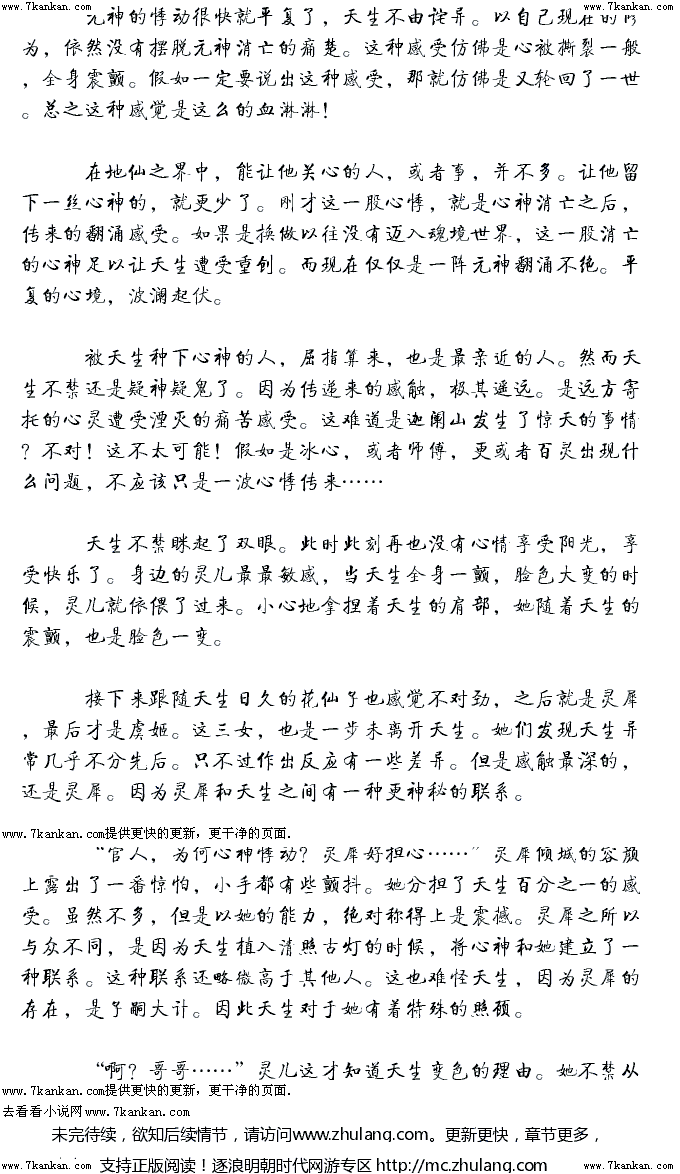 www.7kankan.com www.7kankan.com www.7kankan.com www.7kankan.com
元神的悸动很快就平复了，天生不由诧异。以自己现在的修
为，依然没有摆脱元神消亡的痛楚。这种感受仿佛是心被撕裂一般
，全身震颤。假如一定要说出这种感受，那就仿佛是又轮回了一世
。总之这种感觉是这么的血淋淋！
在地仙之界中，能让他关心的人，或者事，并不多。让他留
下一丝心神的，就更少了。刚才这一股心悸，就是心神消亡之后，
传来的翻涌感受。如果是换做以往没有迈入魂境世界，这一股消亡
的心神足以让天生遭受重创。而现在仅仅是一阵元神翻涌不绝。平
复的心境，波澜起伏。
被天生种下心神的人，屈指算来，也是最亲近的人。然而天
生不禁还是疑神疑鬼了。因为传递来的感触，极其遥远。是远方寄
托的心灵遭受湮灭的痛苦感受。这难道是迦阑山发生了惊天的事情
？不对！这不太可能！假如是冰心，或者师傅，更或者百灵出现什
么问题，不应该只是一波心悸传来……
天生不禁眯起了双眼。此时此刻再也没有心情享受阳光，享
受快乐了。身边的灵儿最最敏感，当天生全身一颤，脸色大变的时
候，灵儿就依偎了过来。小心地拿捏着天生的肩部，她随着天生的
震颤，也是脸色一变。
接下来跟随天生日久的花仙子也感觉不对劲，之后就是灵犀
，最后才是虞姬。这三女，也是一步未离开天生。她们发现天生异
常几乎不分先后。只不过作出反应有一些差异。但是感触最深的，
还是灵犀。因为灵犀和天生之间有一种更神秘的联系。
www.7kankan.com提供更快的更新，更干净的页面.
“官人，为何心神悸动？灵犀好担心……”灵犀倾城的容颜
上露出了一番惊怕，小手都有些颤抖。她分担了天生百分之一的感
受。虽然不多，但是以她的能力，绝对称得上是震撼。灵犀之所以
与众不同，是因为天生植入清照古灯的时候，将心神和她建立了一
种联系。这种联系还略微高于其他人。这也难怪天生，因为灵犀的
存在，是子嗣大计。因此天生对于她有着特殊的照顾。
“啊？哥哥……”灵儿这才知道天生变色的理由。她不禁从
www.7kankan.com提供更快的更新，更干净的页面.
去看看小说网www.7kankan.com
未完待续，欲知后续情节，请访问www.zhulang.com。更新更快，章节更多，
支持正版阅读！逐浪明朝时代网游专区 http://mc.zhulang.com